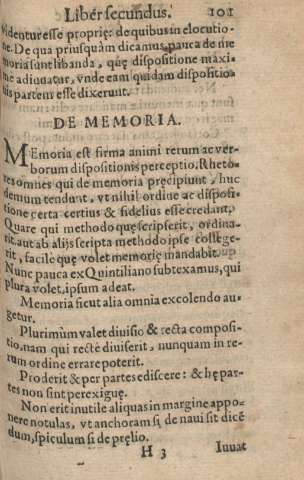 Liber secundus. 101
videntur esse proprię: de quibus in elocutio-
ne. De qua priusquàm dicamus, pauca de me
moria sunt libanda, quę dispositione maxi-
mè adiuuatur, vnde eam quidam dispositio-
nis partem esse dixerunt.
DE MEMORIA.
MEmoria est firma animi rerum ac ver-
borum dispositionis perceptio. Rheto-
res omnes qui de memoria pręcipiunt, huc
demum tendunt, vt nihil ordine ac disposi-
tione certa certius & fidelius esse credant.
Quare qui methodo quę scripserit, ordina-
rit, aut ab alijs scripta methodo ipse collége-
rit, facile quę volet memorię mandabit.
Nunc pauca ex Quintiliano subtexamus, qui
plura volet, ipsum adeat.
Memoria sicut alia omnia excolendo au-
getur.
Plurimùm valet diuisio & recta composi-
tio, nam qui rectè diuiserit, nunquam in re-
rum ordine errare poterit.
Proderit & per partes ediscere: & hę par-
tes non sint perexiguę.
Non erit inutile aliquas in margine appo-
nere notulas, vt anchoram si de naui sit dicē
dum, spiculum si de pręlio.
H 3 Iuuat